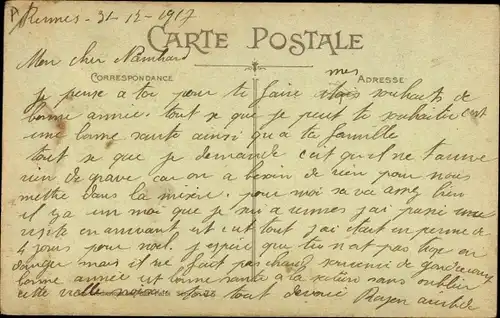 Rennes - 31-12-1917
CARTE POSTALE
Mon cher
CORRESPONDANCE
mes
ADRESSE
Je pense a toi pour te faire souhaits de
bonne année. tout se que je peut te souhaiter c'est
une bonne santé ainsi qu'a ta famille
tout se que je demande c'est qu'il ne t'arrive
rien de grave car on a besoin de rien pour nous
mettre dans la misère. pour moi sa va assez bien
il y a un mois que je sui a rennes j'ai passé une
visite en arrivant et c'est tout j'ai était en perme de
4 jours pour noel. j'espère que tu n'est pas
danger mais il ne fait pas chaud souvenir de
bonne année est bonne santé a la sans oublier
cette tout